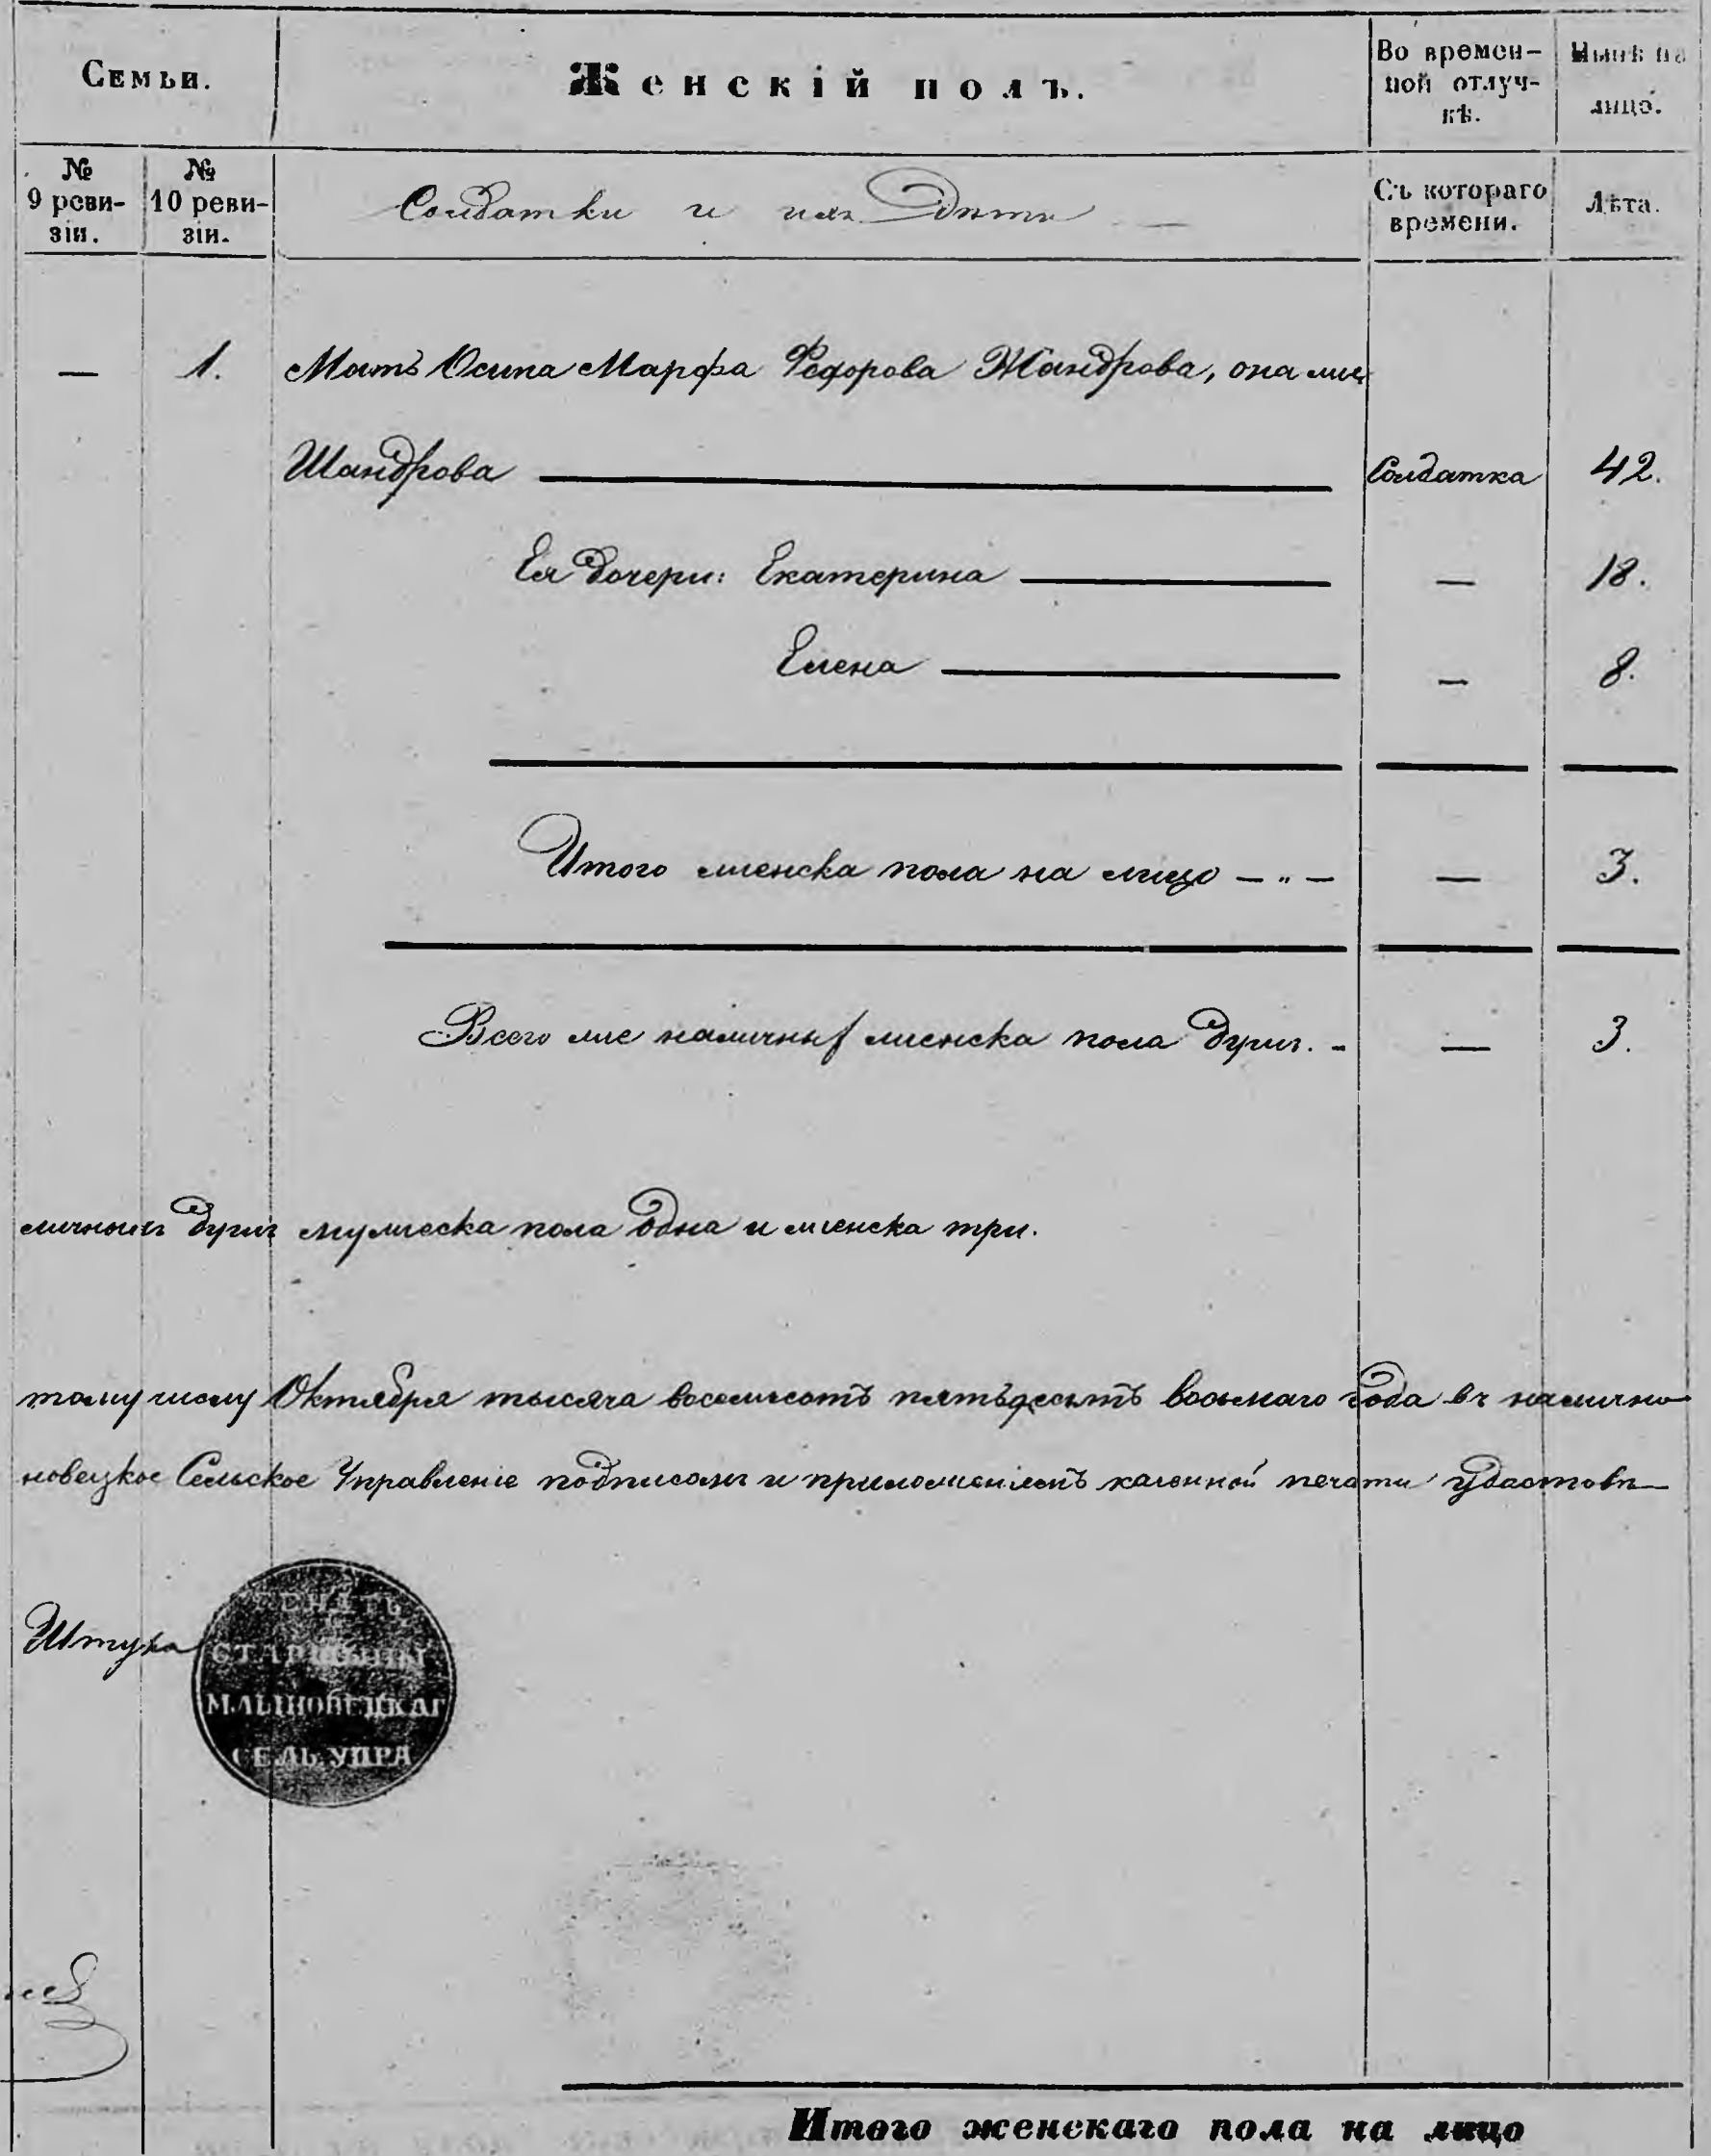 Семьи.
Женскій полъ.
Во времен-
ной отлуч-
кѣ.
Нынѣ на
лицо.
№
9 реви-
зіи.
№
10 реви-
зіи.
Солдатки и ихъ дѣти
Съ котораго
времени.
Лѣта.
— 1. Мать Осипа Марфа Федорова Жандрова, она же
Шандрова — Солдатка 42.
Ея дочери: Екатерина — — 18.
Елена — — 8.
Итого женска пола на лицо — „ — — 3.
Всего же наличныхъ женска пола душъ. - — 3.
личномъ душъ мужеска пола одна и женска три.
тому числу Октября тысяча восемьсотъ пятьдесятъ восьмаго года въ налично
новецкое Сельское Управленіе подписомъ и приложеніемъ казенной печати удостовѣ
Штука
СТАРШИНЫ
МАЛІНОВЕЦКАГ
СЕЛЬ УПРА
Итого женскаго пола на лицо